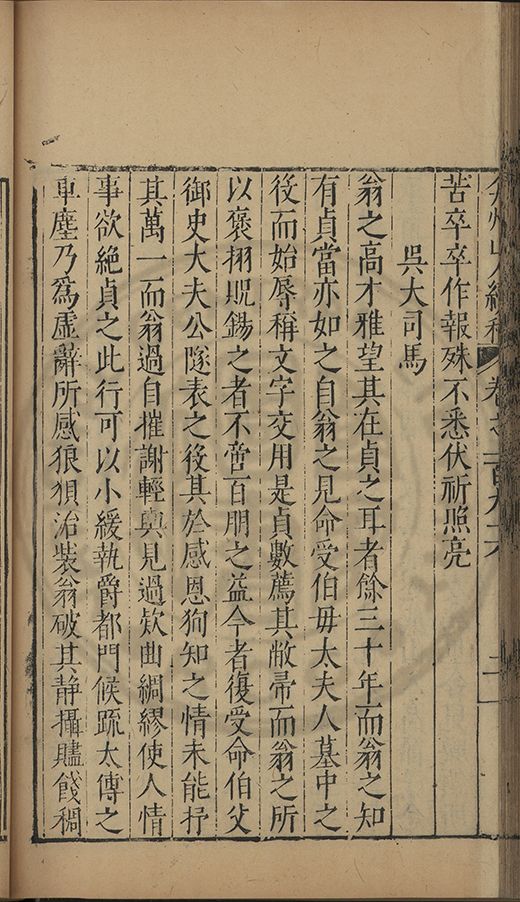 弇州山人續稿 卷之一百九十六 十一
苦卒卒作報殊不悉伏祈照亮
吳大司馬
翁之高才雅望其在貞之耳者餘三十年而翁之知
有貞當亦如之自翁之見命受伯毋太夫人墓中之
役而始辱稱文字交用是貞數薦其敝帚而翁之所
以褒栩貺錫之者不啻百朋之益今者復受命伯父
御史大夫公隧表之役其於感恩狥知之情未能抒
其萬一而翁過自摧謝輕輿見過欵曲綢繆使人情
事欲絶貞之此行可以小緩執爵都門候䟽太傅之
車塵乃爲虛辭所感狼狽治裝翁破其静攝贐餞稠